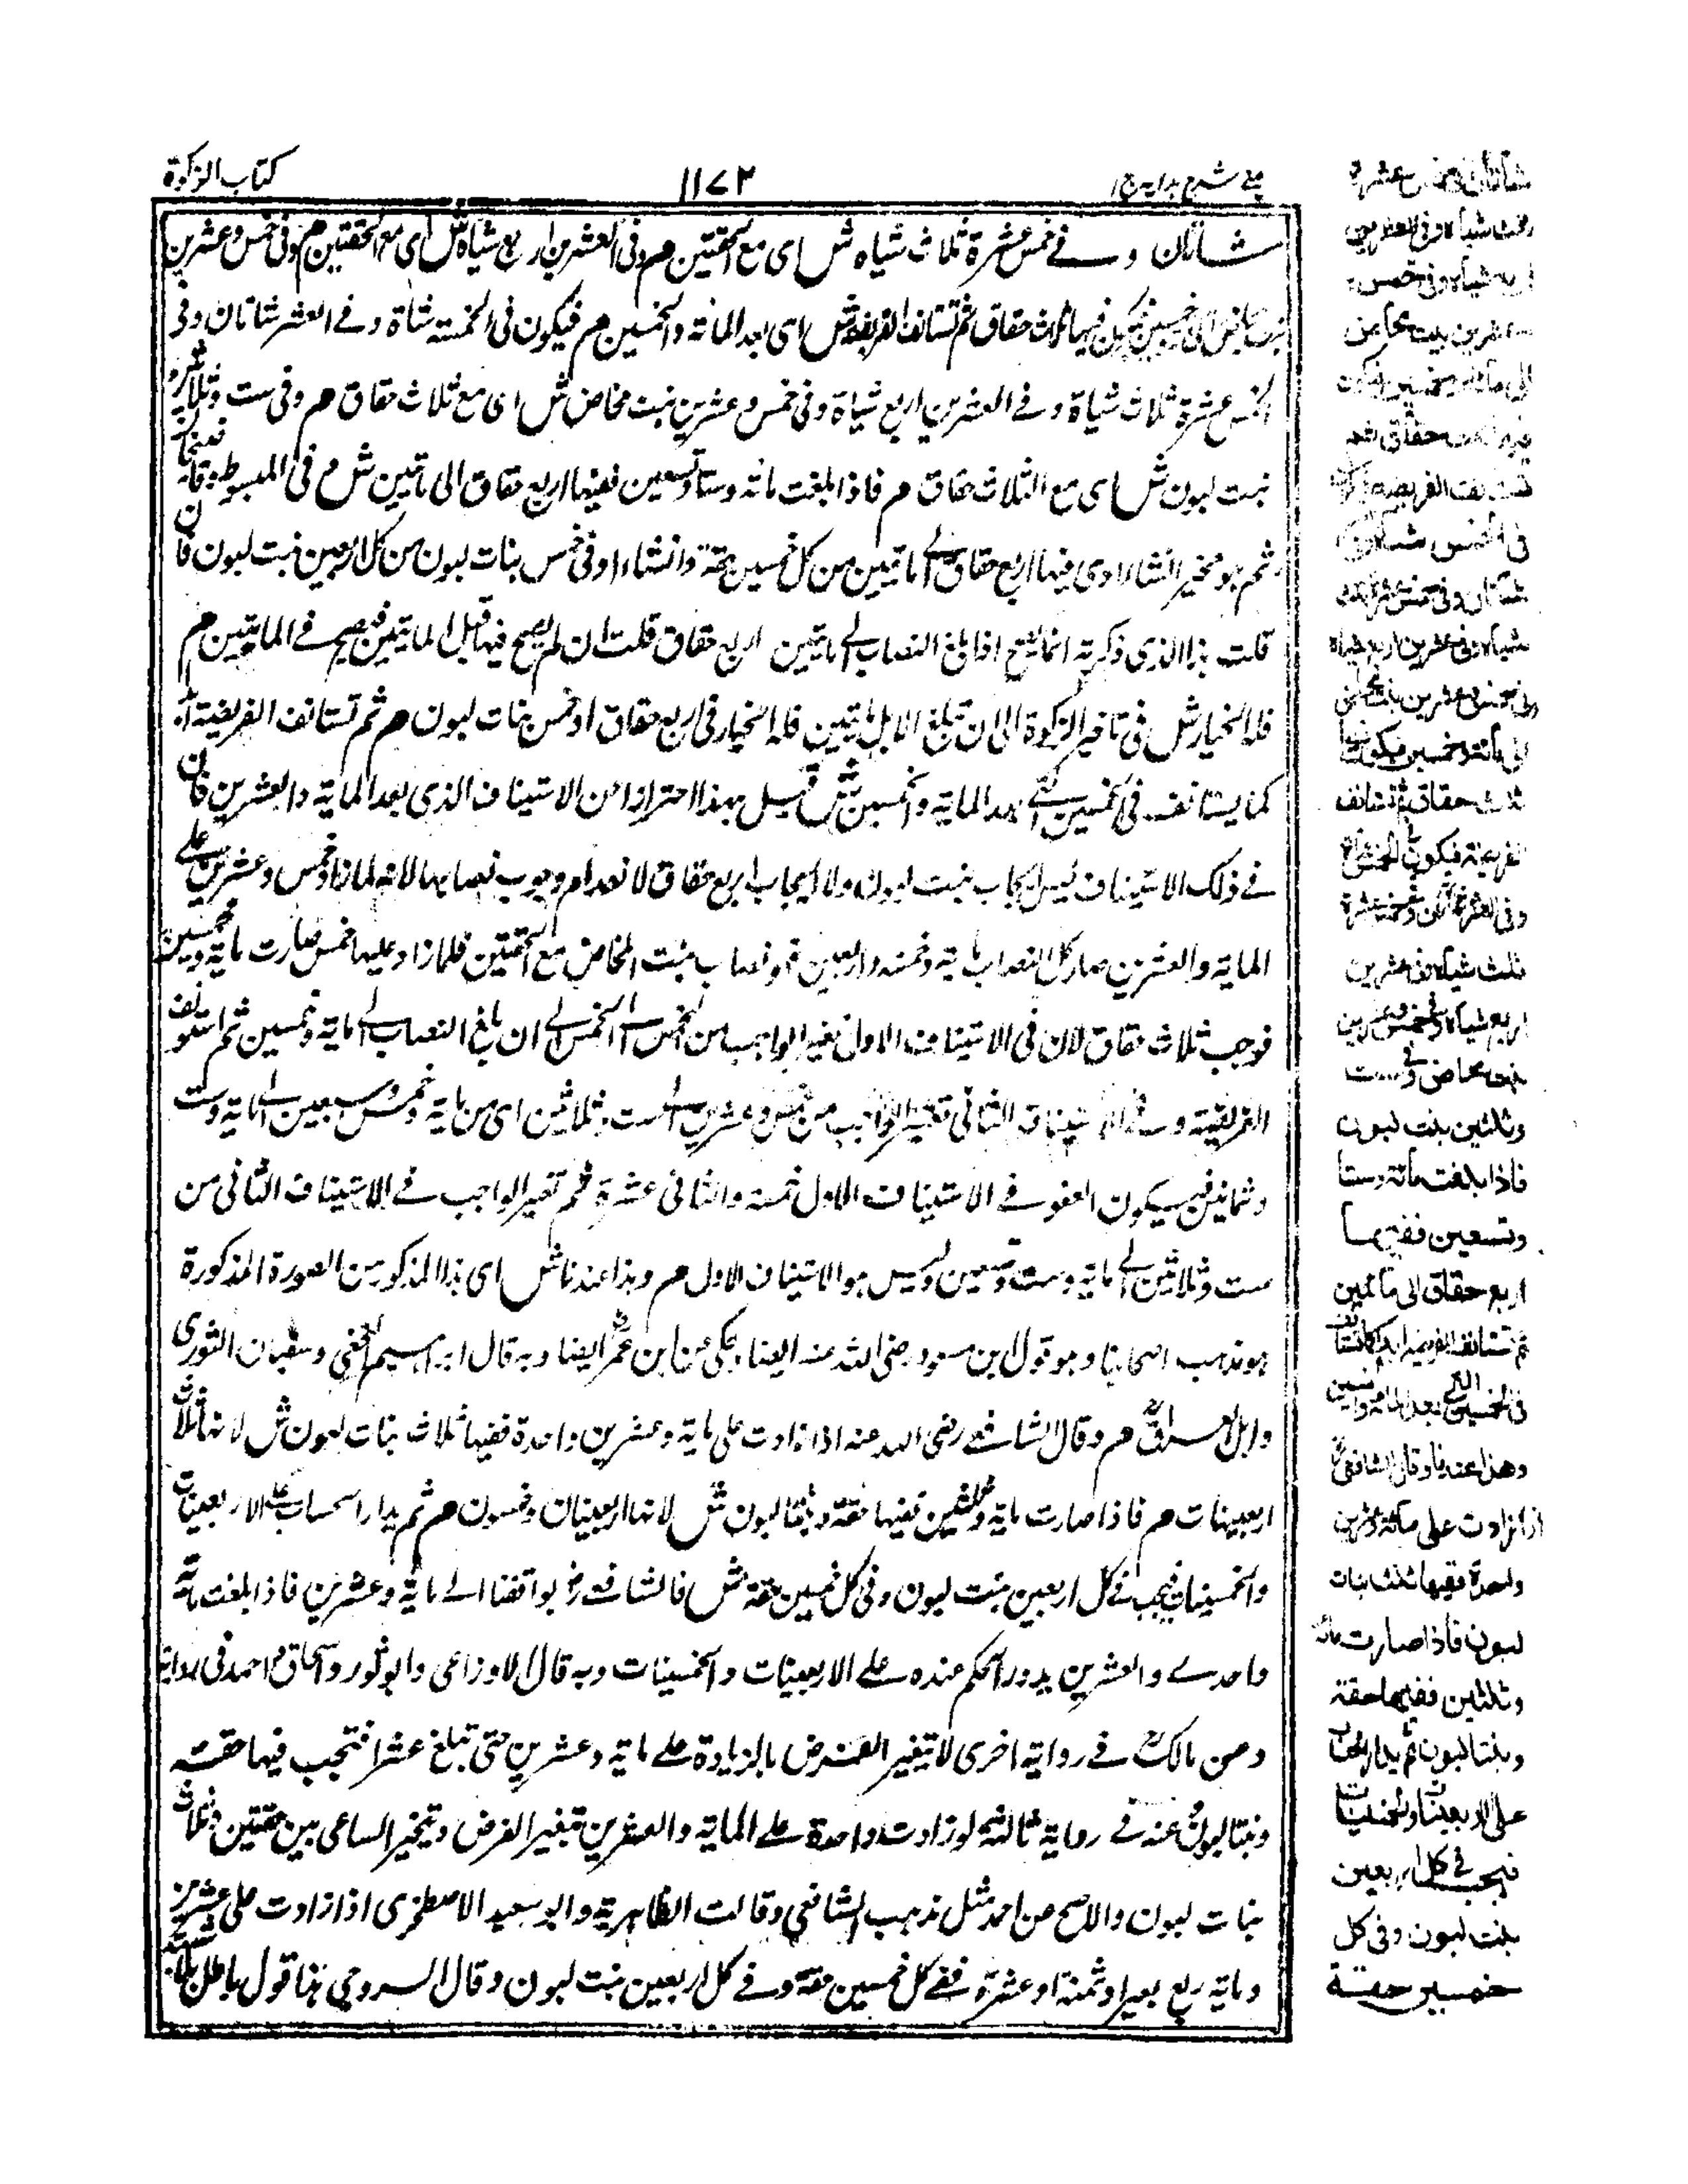 كتاب الزكوة
١١٧٢
شرح هدايه ج ١
شاتان وفے خمس عشرة ثلاث شياه ش اى مع الحقتين م وفى العشرين اربع شياه ش اى مع الحقتين م وفى خمس وعشرين
بنت مخاض الى خمسين فيكون فيها ثلاث حقاق ثم تستانف الفريضة ش اى بعد المائة والخمسين م فيكون فى الخمسة شاة وفے العشر شاتان وفى
الخمس عشرة ثلاث شياة وفے العشرين اربع شياة وفى خمس وعشرين بنت مخاض ش اى مع ثلاث حقاق م وفى ست وثلاثين
بنت لبون ش اى مع الثلاث حقاق م فاذا بلغت مائه وستا وتسعين ففيها اربع حقاق الى ماتين ش م فى المبسوط
ثم هو مخير انشاء ادى فيها اربع حقاق الے ماتين من كل خمسين حقة وانشاء ادى خمس بنات لبون من كل اربعين بنت لبون فان
قلت هذا الذى ذكرته انما يصح اذا بلغ النصاب الے ماتين اربع حقاق قلت ان لم يصح فيها قبل الماتين فيصح فے الماتين م
فله الخيار ش فى تاخير الزكوة الى ان تبلغ الابل ماتين فله الخيار فى اربع حقاق او خمس بنات لبون م ثم تستانف الفريضة ابدا
كما يستانف فى الخمسين التے بعد الماية والخمسين ش قيل بهذا احترازا من الاستيناف الذى بعد الماية والعشرين فان
فے ذلك الاستيناف ليس ايجاب بنت لبون ولا ايجاب اربع حقاق لانعدام وجوب نصابها لانه لما زاد خمس وعشرين علے
الماية والعشرين صار كل النصاب ماية وخمسه واربعين فهو نصاب بنت المخاض مع الحقتين فلما زاد عليها خمس صارت ماية وخمسين
فوجب ثلاث حقاق لان فى الاستيناف الاول تغير الواجب من الخمس الے الخمس الے ان بلغ النصاب الے ماية وخمسين ثم استونف
الفريضة وفے الاستيناف الثانى تغير الواجب من خمس وعشرين الے ست وثلاثين اى من ماية وخمس وسبعين الے ماية وست
وثمانين فيكون العفو فے الاستيناف الاول خمسة والثانى عشرة ثم تغير الواجب فے الاستيناف الثانى من
ست وثلاثين الے ماية وست وتسعين وليس هو الاستيناف الاول م وهذا عندنا ش اى هذا المذكور من الصورة المذكورة
هو مذهب اصحابنا وهو قول ابن مسعود رضى الله عنه ايضا يحكى عن ابن عمر ايضا وبه قال ابراهيم النخعى وسفيان الثورى
واهل العراق م وقال الشافعے رضى الله عنه اذا زادت على ماية وعشرين واحدة ففيها ثلاث بنات لبون ش لانها ثلاث
اربعينات م فاذا صارت ماية وثلثين ففيها حقة وبنتا لبون ش لانها اربعينان وخمسون م ثم يدار الحساب على الاربعينات
والخمسينات فيجب فے كل اربعين بنت لبون وفى كل خمسين حقة ش فالشافعے يوافقنا الے ماية وعشرين فاذا بلغت ماية
واحدے والعشرين يدور الحكم عنده علے الاربعينات والخمسينات وبه قال الاوزاعى وابو ثور واسحاق و احمد فى رواية
وعن مالك فے رواية اخرى لا تتغير الفرض بالزيادة علے ماية وعشرين حتى تبلغ عشرا فتجب فيها حقة
وبنتا لبون عنه فے رواية ثالثة لو زادت واحدة علے الماية والعشرين تغير الفرض ويتخير الساعى بين حقتين وثلاث
بنات لبون والاصح عن احمد مثل مذهب الشافعى وقالت الظاهرية وابو سعيد الاصطخرى اذا زادت على عشرين
وماية ربع بعير او ثمنة او عشرة ففے كل خمسين حقة وفے كل اربعين بنت لبون وقال السروجى هذا قول باطل
ثلث شياه وفى العشرين
اربع شياه وفى خمس و
عشرين بنت مخاض
الى مائة وخمسين فيكون
فيها ثلث حقاق ثم
تستانف الفريضة فيكون
فى الخمس شاة وفى العشر
شاتان وفى خمس عشرة ثلث
شياه وفى عشرين اربع شياه
وفى خمس وعشرين بنت مخاض
الى مائة وخمسين فيكون فيها
ثلث حقاق ثم تستانف
الفريضة فيكون فى الخمس شاة
وفى العشر شاتان وفى خمس عشرة
ثلث شياه وفى عشرين
اربع شياه وفى خمس وعشرين
بنت مخاض وفى ست
وثلثين بنت لبون
فاذا بلغت مائة وستا
وتسعين ففيها
اربع حقاق الى مائتين
ثم تستانف الفريضة ابدا كما تستانف
فى الخمسين التى بعد المائة والخمسين
وهذا عندنا وقال الشافعى
اذا زادت على مائة وعشرين
واحدة ففيها ثلث بنات
لبون فاذا صارت مائة
وثلثين ففيها حقة
وبنتا لبون ثم يدار الحساب
على الاربعينات والخمسينات
فيجب فى كل اربعين
بنت لبون وفى كل
خمسين حقة